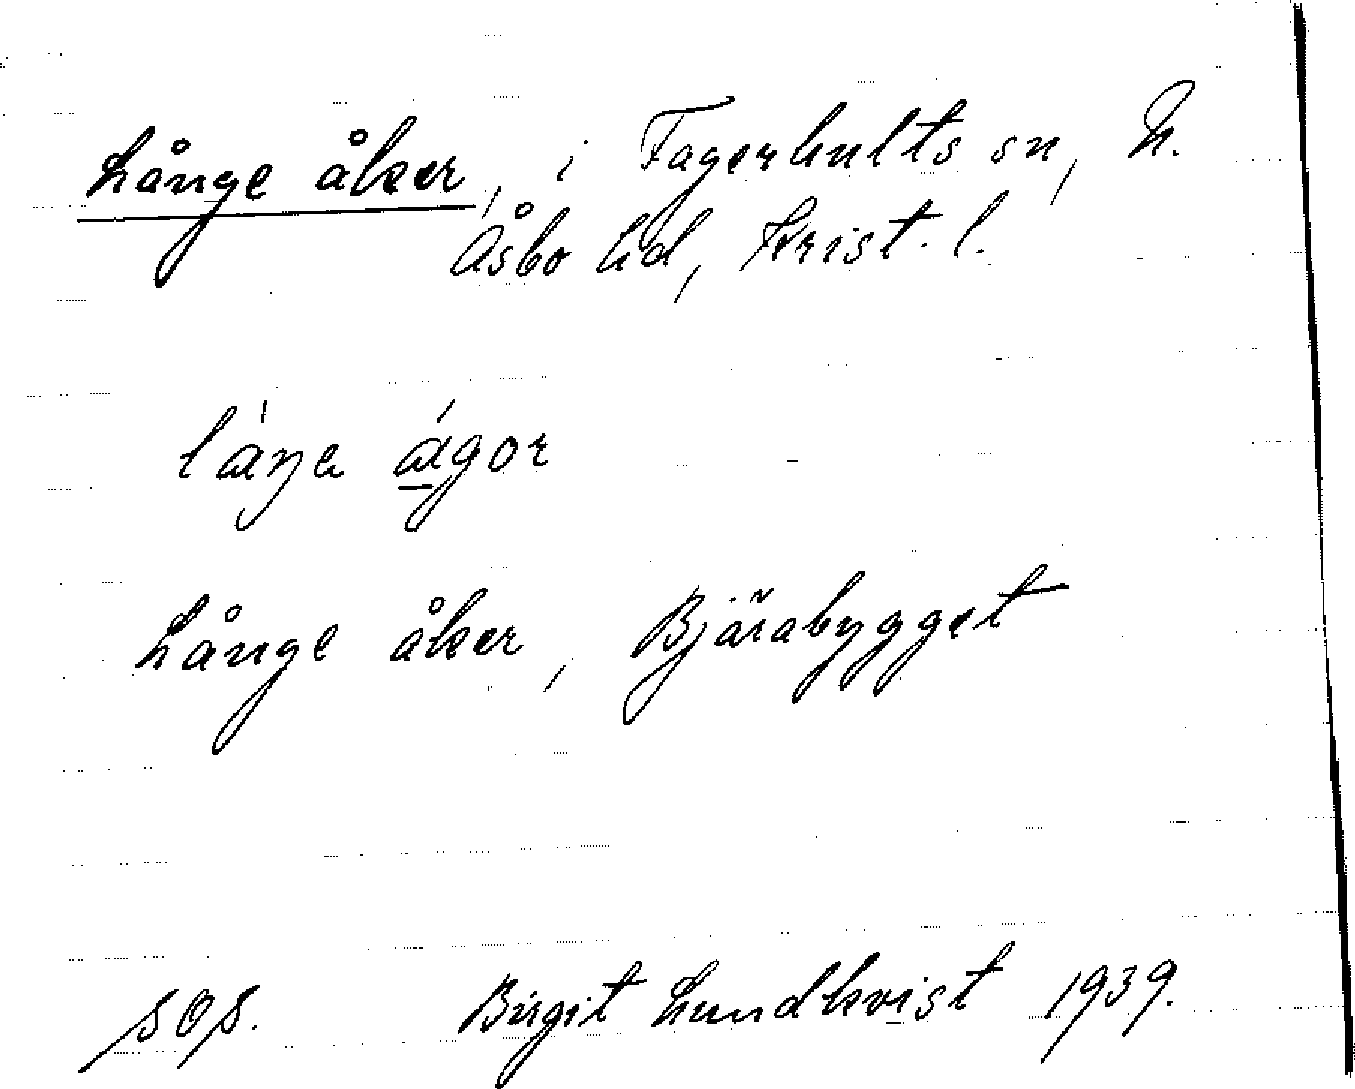 Långe åker, i Fagerhults sn, N.
Åsbo hd, Krist. l.
láŋa ágor
Långe åker, Bjärabygget
sos. Birgit Lundkvist 1939.